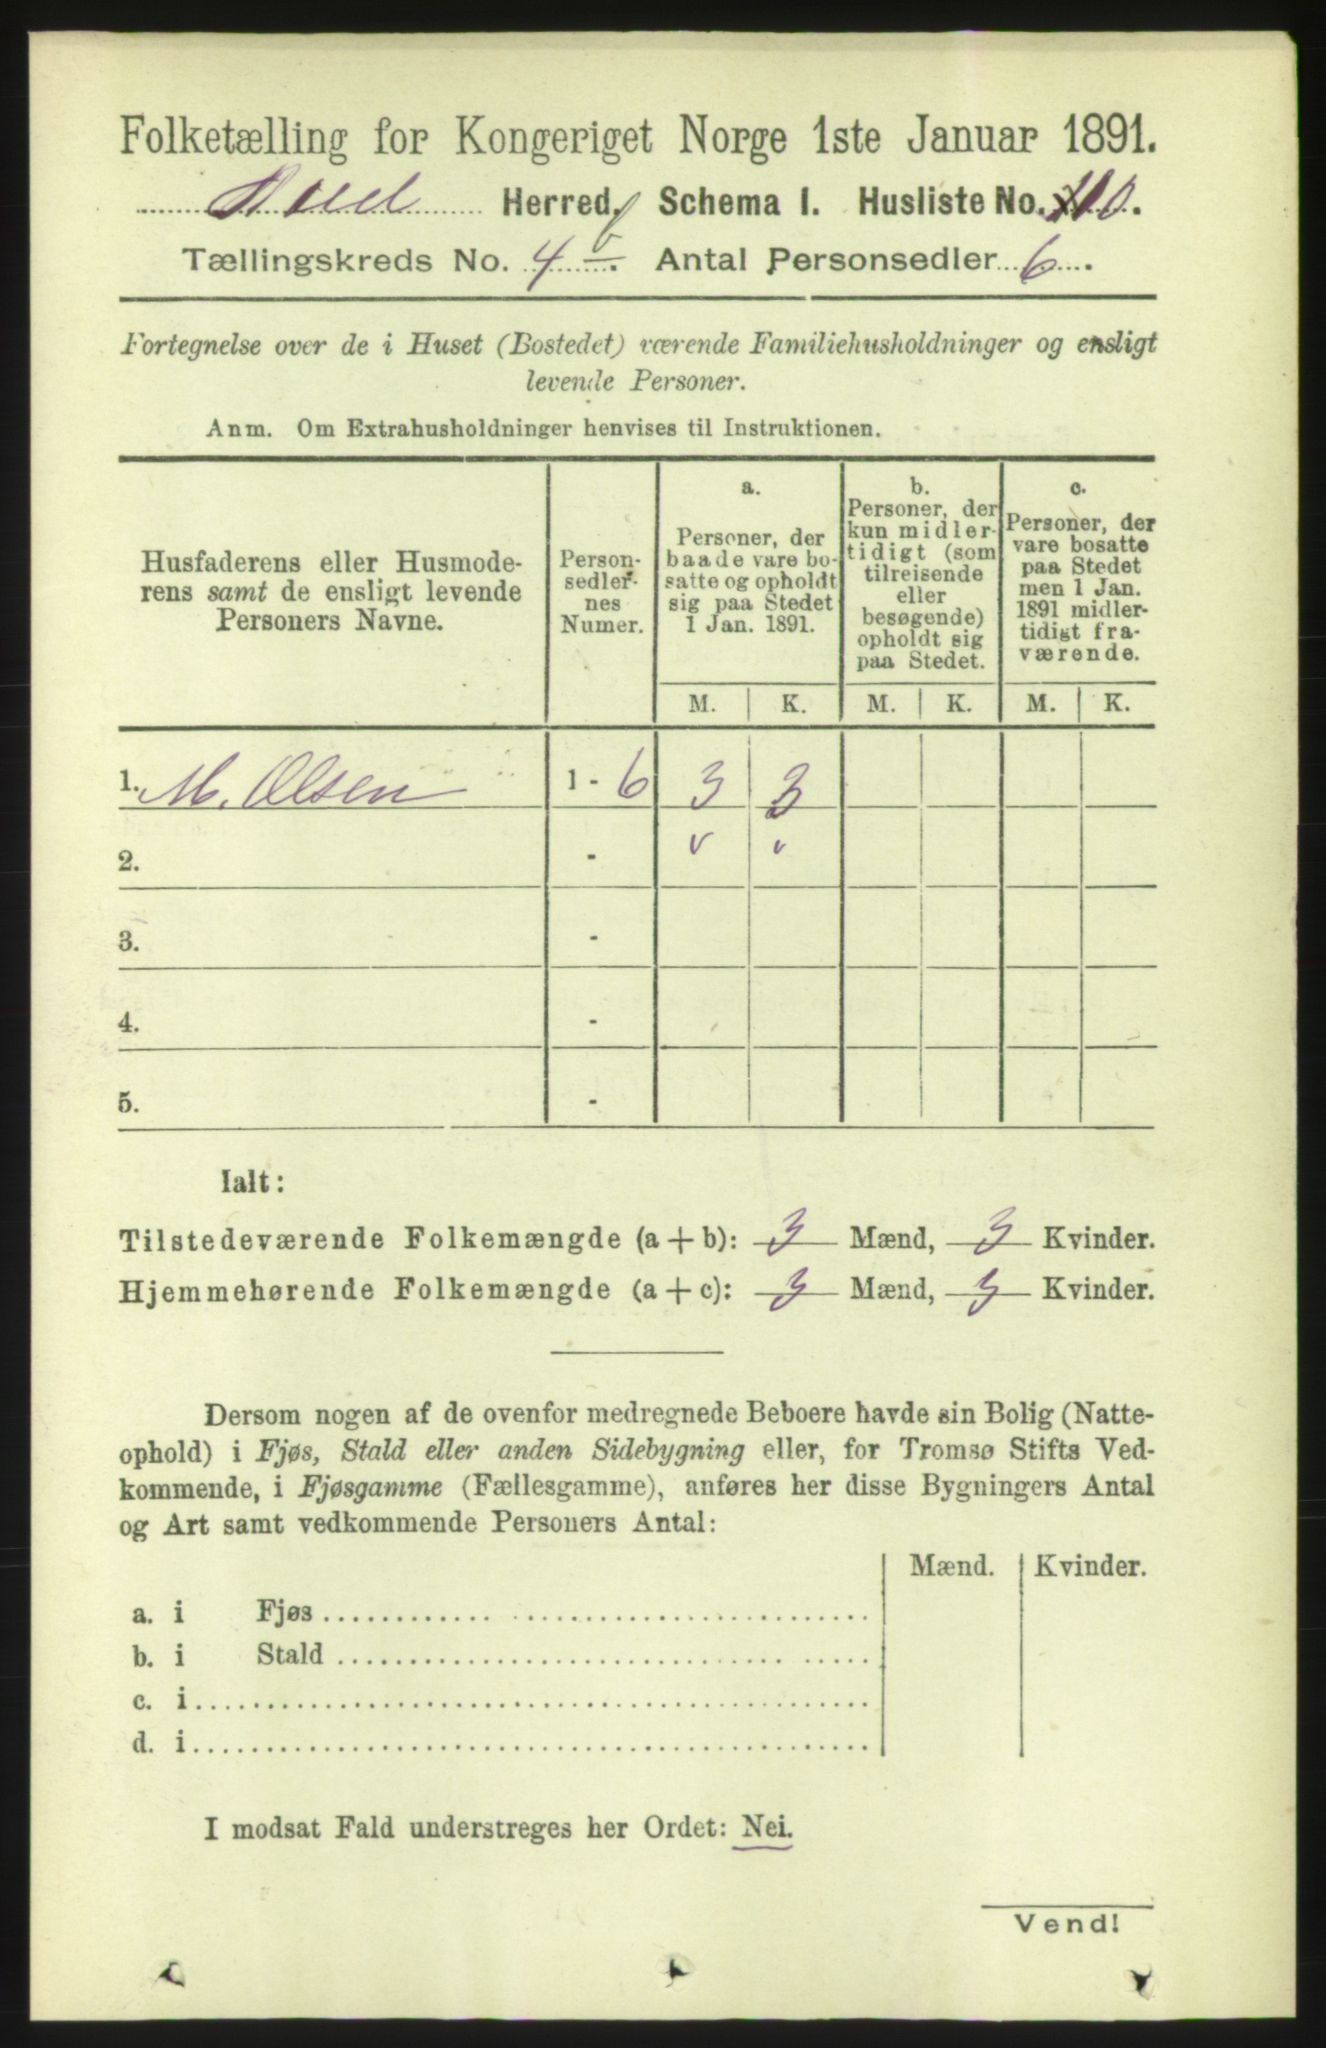 Folketælling for Kongeriget Norge 1ste Januar 1891.
Herred. Schema I. Husliste No.
Tællingskreds No. 4 b. Antal Personsedler 6.
Fortegnelse over de i Huset (Bostedet) værende Familiehusholdninger og ensligt
levende Personer.
Anm. Om Extrahusholdninger henvises til Instruktionen.
Husfaderens eller Husmode-
rens samt de ensligt levende
Personers Navne.
Person-
sedler-
nes
Numer.
a.
Personer, der
baade vare bo-
satte og opholdt
sig paa Stedet
1 Jan. 1891.
b.
Personer, der
kun midler-
tidigt (som
tilreisende
eller
besøgende)
opholdt sig
paa Stedet.
c.
Personer, der
vare bosatte
paa Stedet
men 1 Jan.
1891 midler-
tidigt fra-
værende.
M. K. M. K. M. K.
1. M. Olsen 1 - 6 3 3
2. - v v
3. -
4. -
5. -
Ialt:
Tilstedeværende Folkemængde (a + b): 3 Mænd, 3 Kvinder.
Hjemmehørende Folkemængde (a + c): 3 Mænd, 3 Kvinder.
Dersom nogen af de ovenfor medregnede Beboere havde sin Bolig (Natte-
ophold) i Fjøs, Stald eller anden Sidebygning eller, for Tromsø Stifts Ved-
kommende, i Fjøsgamme (Fællesgamme), anføres her disse Bygningers Antal
og Art samt vedkommende Personers Antal:
Mænd. Kvinder.
a. i Fjøs
b. i Stald
c. i
d. i
I modsat Fald understreges her Ordet: Nei.
Vend!